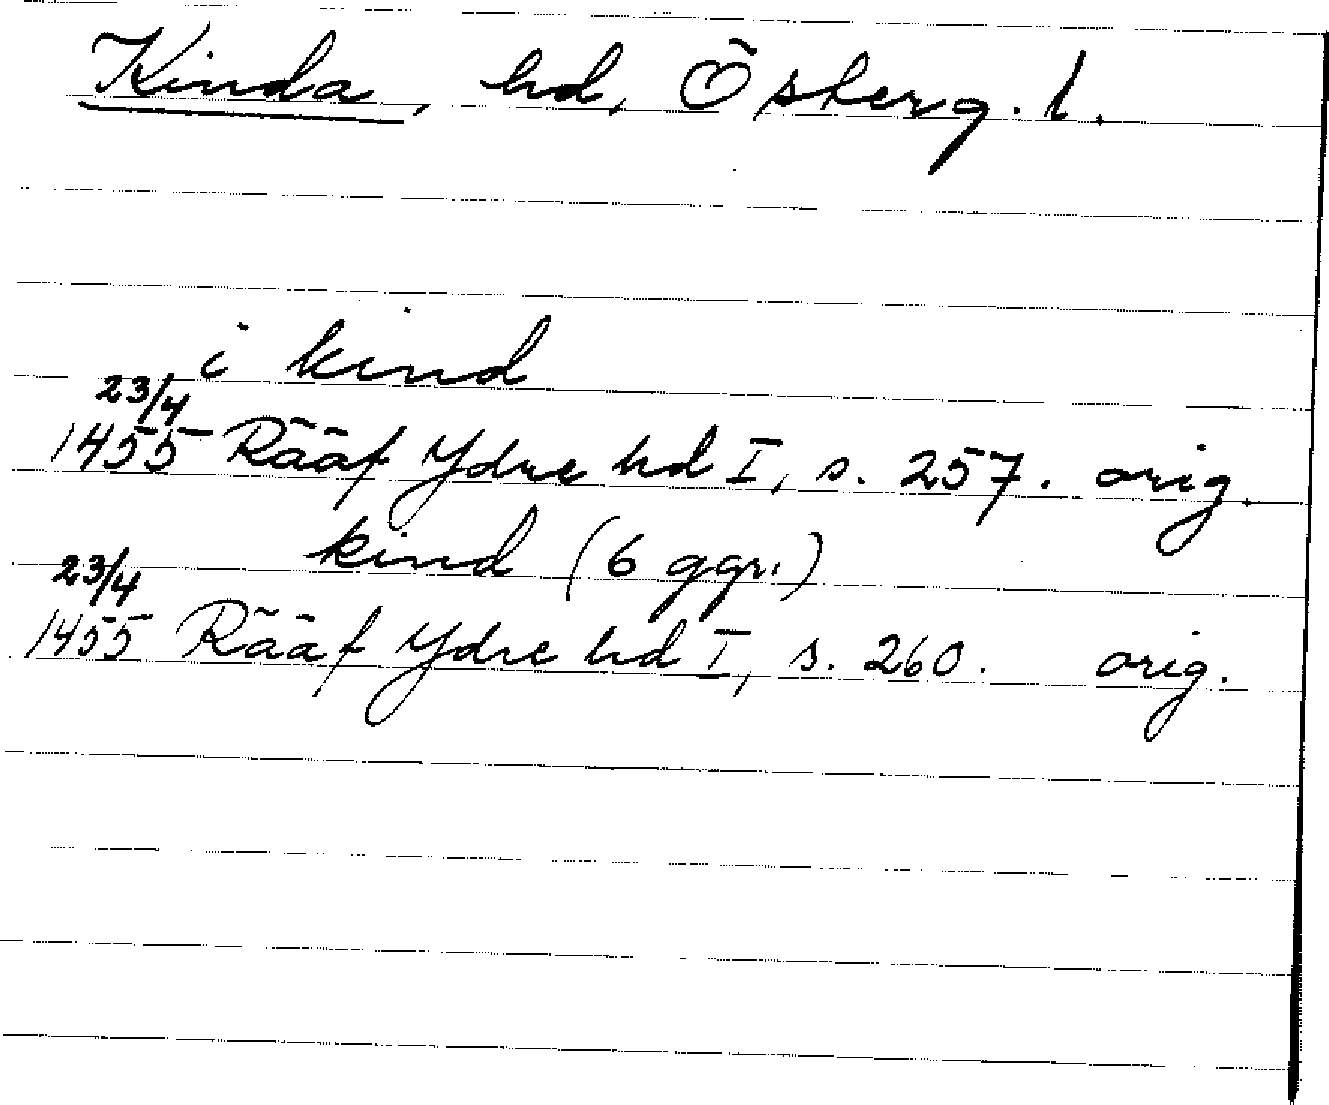 Kinda, hd, Östergl.
i kind
23/4
1455 Rääf Ydre hd I, s. 257. orig.
kind (6 ggr.)
23/4
1455 Rääf Ydre hd I, s. 260. orig.